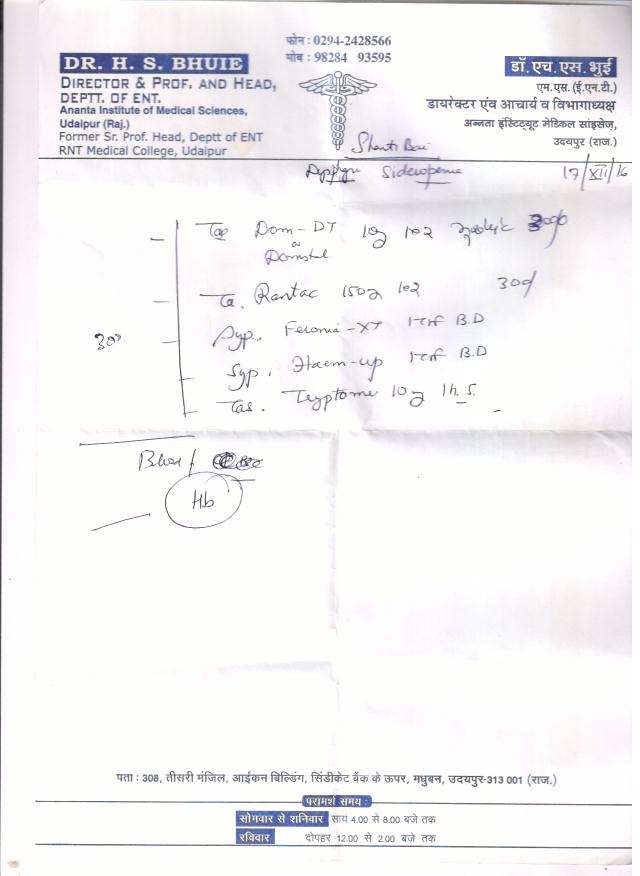 फोन : 0294-2428566
मोब : 98284 93595
DR. H. S. BHUIE
DIRECTOR & PROF. AND HEAD,
DEPTT. OF ENT.
Ananta Institute of Medical Sciences,
Udaipur (Raj.)
Former Sr. Prof. Head, Deptt of ENT
RNT Medical College, Udaipur
डॉ. एच. एस. भुई
एम.एस. (ई.एन.टी.)
डायरेक्टर एंव आचार्य व विभागाध्यक्ष
अनन्ता इंस्टिट्यूट मेडिकल सांइसेज,
उदयपुर (राज.)
Shanti Bai
Sideropenic
17/XII/16
Dom-DT 10
Domstal
Rantac 150
30d
Syp. Feronia-XT B.D
Syp. Haem-up B.D
Tab. Tryptome 10 h.s.
Blood
Hb
पता : 308, तीसरी मंजिल, आईकन बिल्डिंग, सिंडीकेट बैंक के ऊपर, मधुबन, उदयपुर-313 001 (राज.)
परामर्श समय :
सोमवार से शनिवार सायं 4.00 से 8.00 बजे तक
रविवार दोपहर 12.00 से 2.00 बजे तक